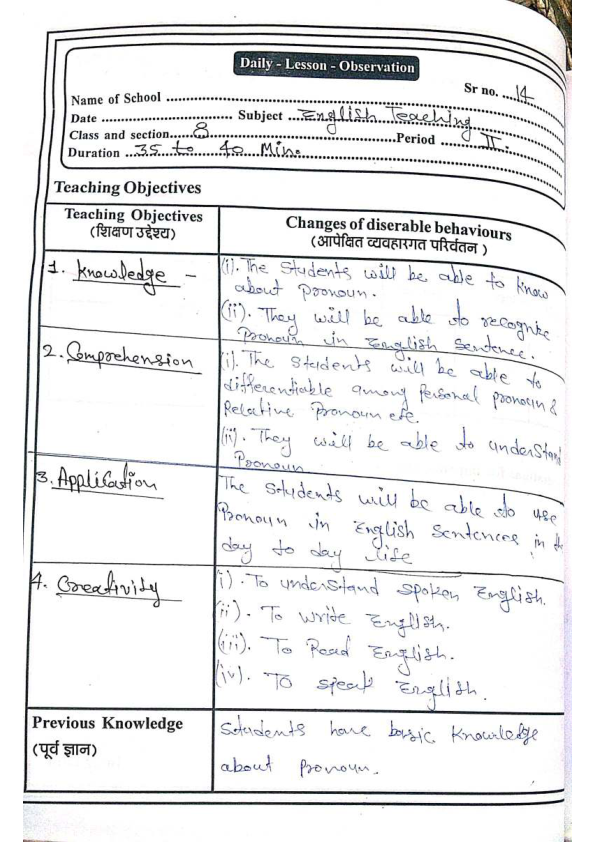 Daily - Lesson - Observation
Sr no. ....14
Name of School
Date ........ Subject ...English Teaching
Class and section......8 ........Period ....II.
Duration ...35 to 40 Min.
Teaching Objectives
Teaching Objectives
(शिक्षण उद्देश्य)
Changes of diserable behaviours
(आपेक्षित व्यवहारगत परिवंतन )
1. Knowledge -
(i). The Students will be able to know
about pronoun.
(ii). They will be able to recognize
Pronoun in English Sentence.
2. Comprehension
(i). The students will be able to
differentiable among personal pronoun &
Relative Pronoun etc.
(ii). They will be able to understand
Pronoun
3. Application
The Students will be able to use
Pronoun in English Sentences in the
day to day life
4. Creativity
(i). To understand spoken English.
(ii). To write English.
(iii). To Read English.
(iv). To speak English.
Previous Knowledge
(पूर्व ज्ञान)
Students have basic knowledge
about pronoun.